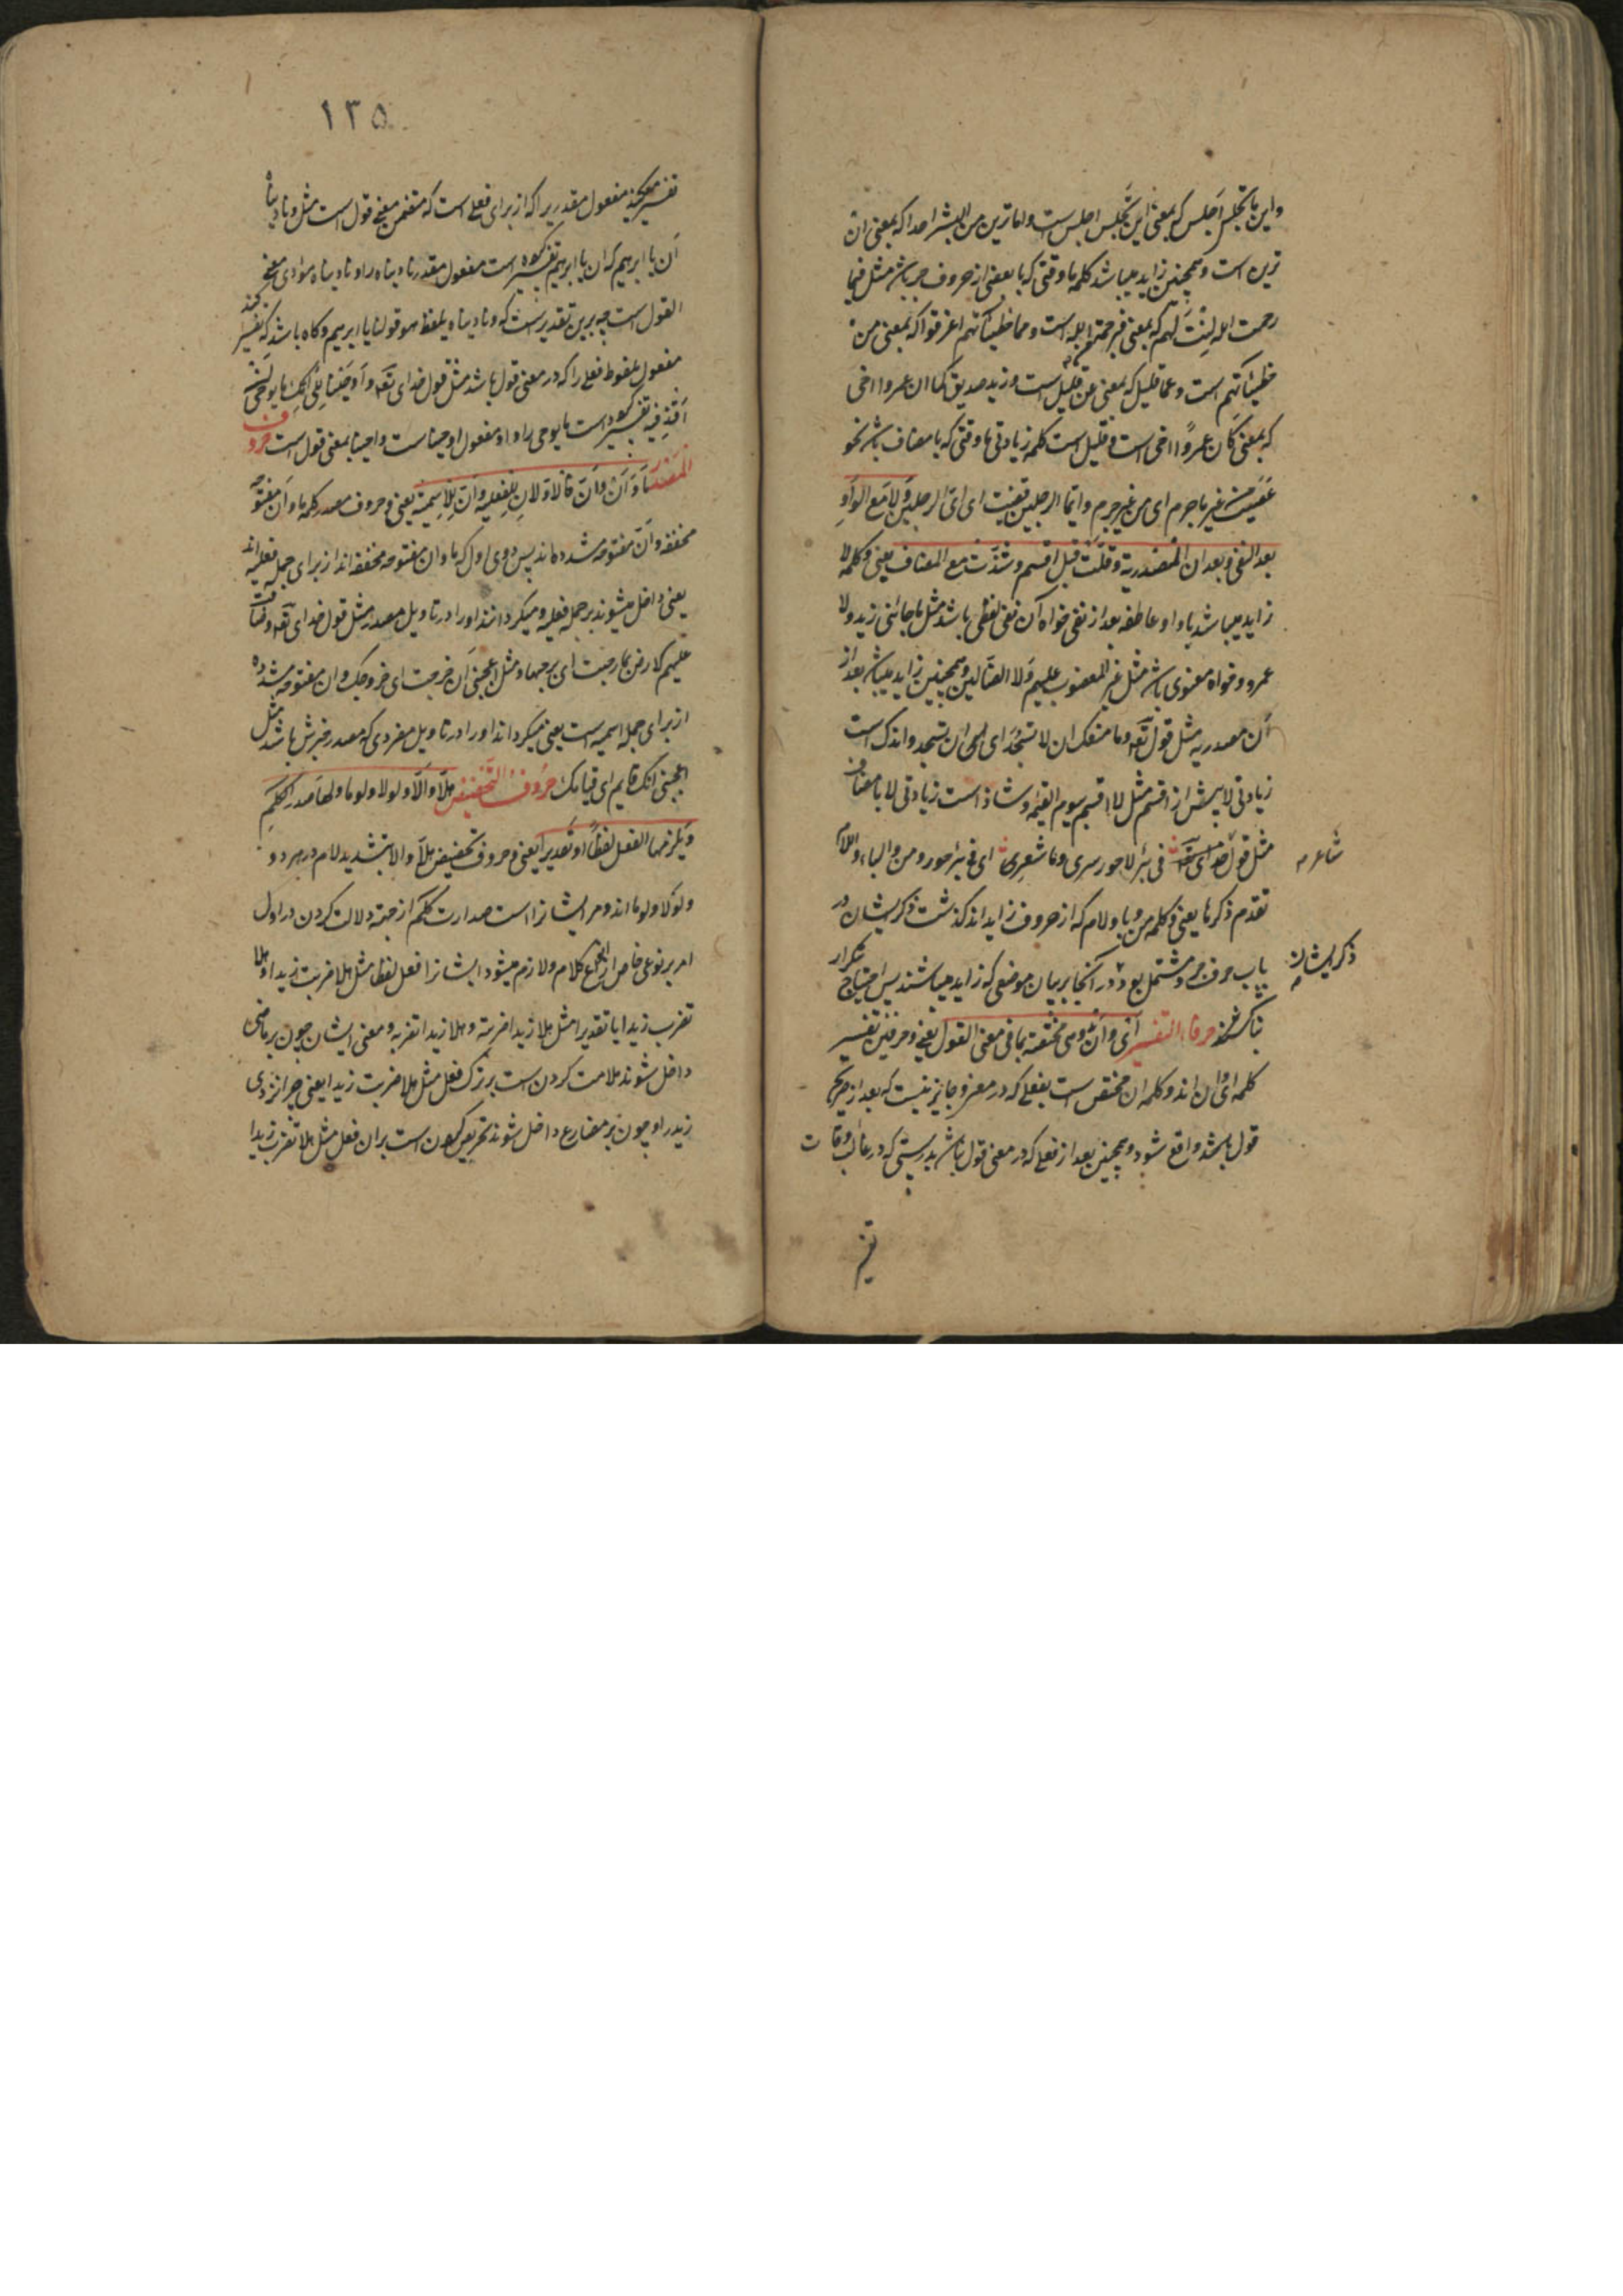 واین ما تجلس اجلس که بمعنی این تجلس اجلس است واما ترین من البشر احدا که بمعنی ان
ترین است وهمچنین زاید میباشد کلمه ما وقتی که با بعضی از حروف جر باشد مثل فبما
رحمت الله لِنْتَ لَهم که بمعنی فبرحمة الله است ومما خطیئاتهم اغرقوا که بمعنی من
خطیئاتهم است وعما قلیل که بمعنی عن قلیل است وزید صدیقی کما ان عمروا اخی
که بمعنی کان عمروًا اخی است وقلیل است کلمه زیادتی ما وقتی که با مضاف باشد نحو
غضبت من غیر ما جرم ای من غیر جرم وایما الرجلین قضیت ای ای الرجلین وَلا مَع الوَاوِ
بعد النفی وبعد ان المصدریة وقلّت قبل اقسم وشذّت مع المضاف یعنی وکلمه لا
زاید میباشد با واو عاطفه بعد از نفی خواه آن نفی لفظی باشد مثل ما جائنی زید ولا
عمرو وخواه معنوی باشد مثل غیر المغضوب علیهم وَلا الضالین وهمچنین زاید میباشد بعد از
اَن مصدریه مثل قول تعه وما منعک ان لا تسجُدَ ای ان تسجد واندک است
زیادتی لا پیش از اقسم مثل لا اقسم بیوم القیمه وشاذ است زیادتی لا با مضاف
مثل قول شاعر فی بئر لا حور سری وما شعری ای فی بئر حور ومن والباء واللام
تقدم ذکرها یعنی وکلمه من وبا ولام که از حروف زایداند کذشت ذکر ایشان در
باب حروف جر ومشتمل بود ذکر ایشان در آنجا بر بیان موضعی که زاید میباشند پس احتیاج تکرار
نباشد حرفا التفسیر ای وان وهی مختصة بما فی معنی القول یعنی دو حرفین تفسیر
کلمه ای وان اند وکلمه ان مختص است بفعلی که در معنی وجایز نیست که بعد از صریح
قول باشد واقع شود وهمچنین بعد از فعلی که در معنی قول نباشد بدرستی که در غالب اوقات
تفسیر
١٣٥
تفسیر میکند مفعول مقدریرا که از برای فعلی است که متضمن معنی قول است مثل ونادیناه
اَن یا ابرهیم که ان یا ابرهیم تفسیر کرده است مفعول مقدر نادیناه را ونادیناه مؤادی معنی
القول است چه برین تقدیر است که ونادیناه بلفظ هو قولنا یا ابرهیم وکاه باشد که تفسیر کند
مفعول ملفوظ فعلی را که در معنی قول باشد مثل قول خدای تعه واَوحَینا اِلی اُمّک ما یوحی اَن
اقذفیه تفسیر کرده است ما یوحی را واو مفعول اوحینا است واوحینا بمعنی قول است حروف
المصدر مَا وَاَنْ وَاَنّ فالاوّلانِ لِلفعلیه وانّ للِاسمیّة یعنی وحروف مصدر کلمه ما وان مفتوحه
مخففه وانّ مفتوحه مشدده‌اند پس دوی اول که ما وان مفتوحه مخففه اند از برای جمله فعلیه اند
یعنی داخل میشوند بر جمله فعلیه ومیکردانند اورا در تاویل مصدر مثل قول خدای تعه وضاقت
علیهم الارض بما رحبت ای برحبها ومثل اعجبنی اَن خرجت ای خروجک وان مفتوحه مشدده
از برای جمله اسمیه است یعنی میکرداند اورا در تاویل مفردی که مصدر خبرش باشد مثل
اعجبنی انک قایم ای قیامک حُروف التحضیض هَلّا وَاَلّا ولولا ولوما ولها صَدر الکلمِ
وَیلزمها الفعل لفظًا او تقدیراً یعنی وحروف تحضیض هلّا والا بتشدید لام در هر دو
ولَوْلا ولوما اند ومر ایشانرا است صدارت کلم از جهة دلالت کردن در اول
امر بر نوعی خاص از انواع کلام ولازم میشود ایشانرا فعل لفظا مثل هلا ضربت زیدا وهلا
تضرب زیدا یا تقدیرا مثل هلا زیدا ضربته وهلا زیدا تضربه ومعنی ایشان چون بر ماضی
داخل شوند ملامت کردن است بر ترک فعل مثل هلا ضربت زیدا یعنی چرا نزدی
زید را وچون بر مضارع داخل شوند تحریص کردن است بر ان فعل مثل هلا تضرب زیدا